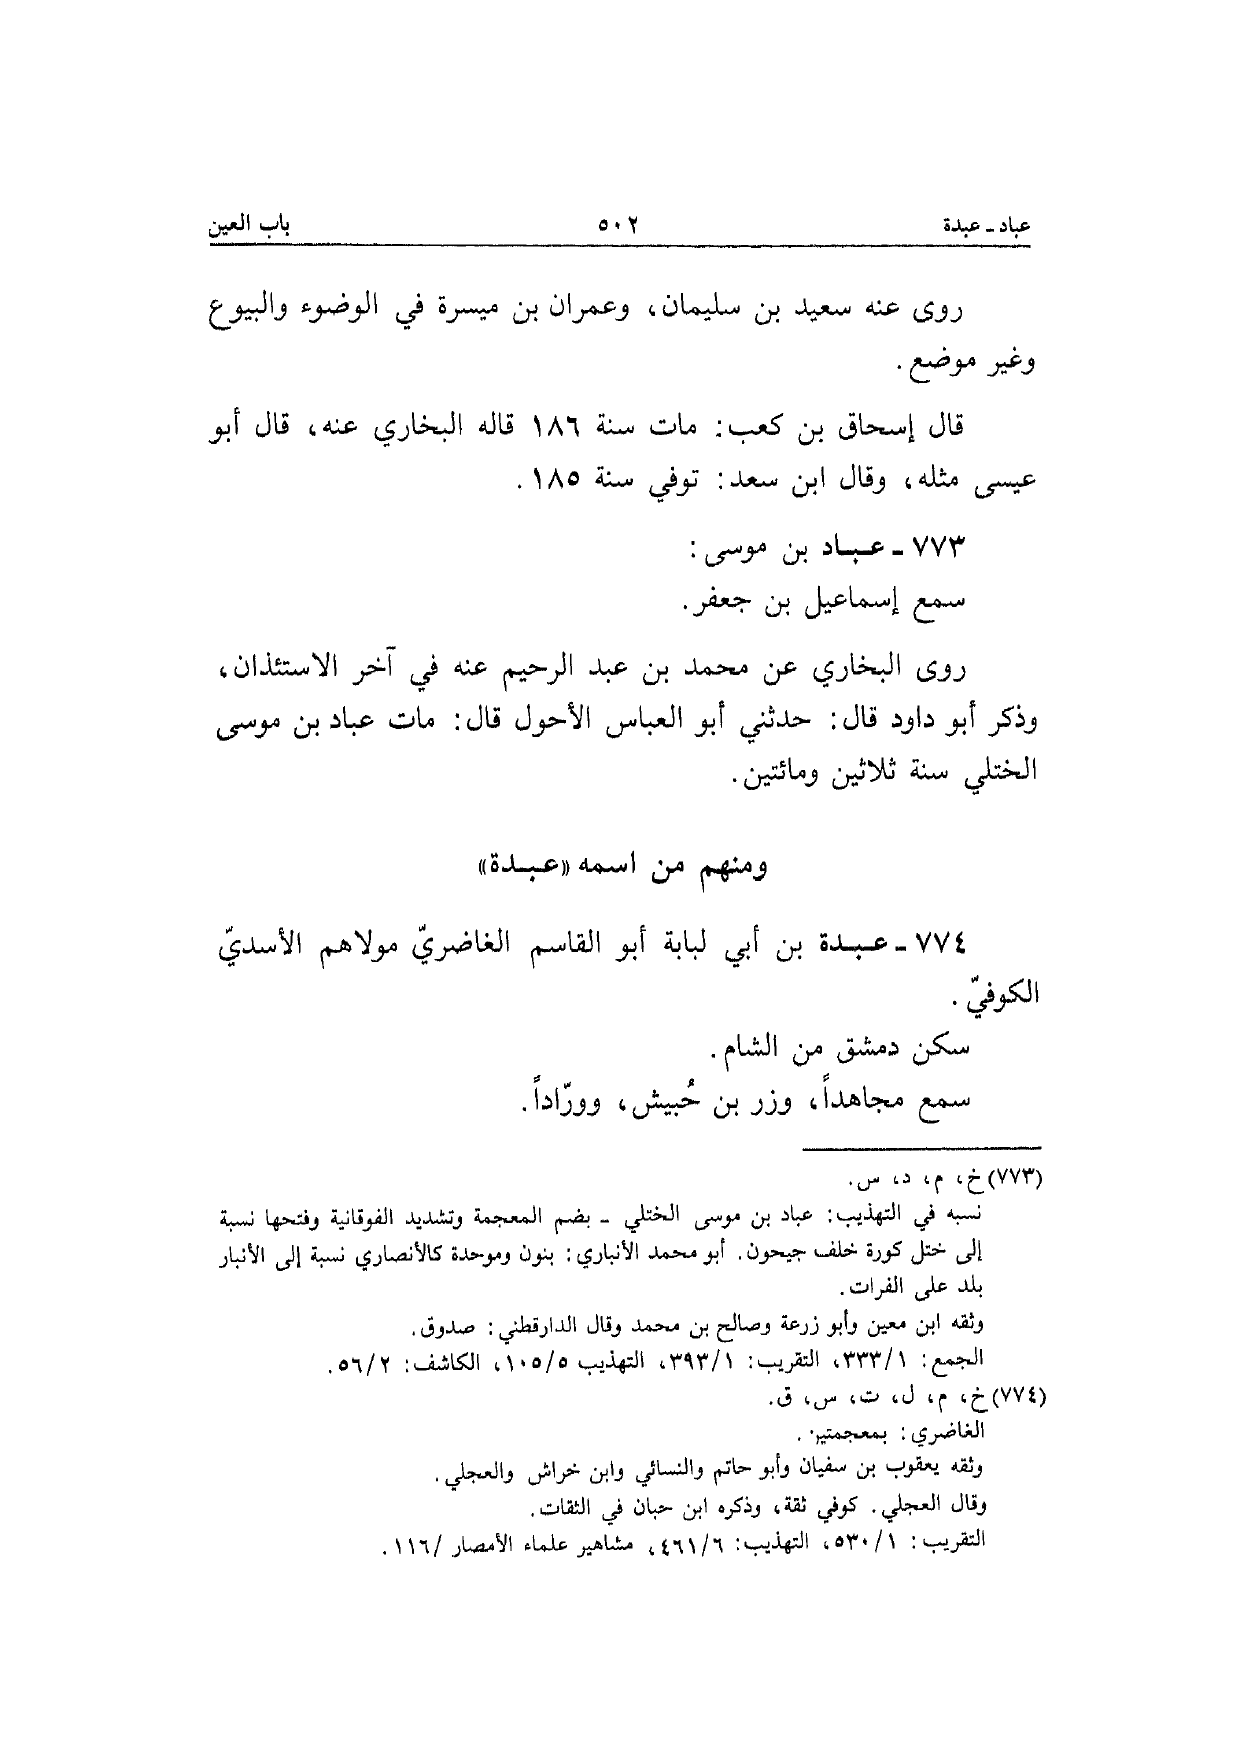 عباد ـ عبدة ٥٠٢ باب العين
روى عنه سعيد بن سليمان، وعمران بن ميسرة في الوضوء والبيوع
وغير موضع.
قال إسحاق بن كعب: مات سنة ١٨٦ قاله البخاري عنه، قال أبو
عيسى مثله، وقال ابن سعد: توفي سنة ١٨٥.
٧٧٣ ـ عباد بن موسى:
سمع إسماعيل بن جعفر.
روى البخاري عن محمد بن عبد الرحيم عنه في آخر الاستئذان،
وذكر أبو داود قال: حدثني أبو العباس الأحول قال: مات عباد بن موسى
الختلي سنة ثلاثين ومائتين.
ومنهم من اسمه «عبدة»
٧٧٤ ـ عبدة بن أبي لبابة أبو القاسم الغاضريّ مولاهم الأسديّ
الكوفيّ.
سكن دمشق من الشام.
سمع مجاهداً، وزر بن حُبيش، وورّاداً.
(٧٧٣) خ، م، د، س.
نسبه في التهذيب: عباد بن موسى الختلي ـ بضم المعجمة وتشديد الفوقانية وفتحها نسبة
إلى ختل كورة خلف جيحون. أبو محمد الأنباري: بنون وموحدة كالأنصاري نسبة إلى الأنبار
بلد على الفرات.
وثقه ابن معين وأبو زرعة وصالح بن محمد وقال الدارقطني: صدوق.
الجمع: ٣٣٣/١، التقريب: ٣٩٣/١، التهذيب ١٠٥/٥، الكاشف: ٥٦/٢.
(٧٧٤) خ، م، ل، ت، س، ق.
الغاضري: بمعجمتين.
وثقه يعقوب بن سفيان وأبو حاتم والنسائي وابن خراش والعجلي.
وقال العجلي. كوفي ثقة، وذكره ابن حبان في الثقات.
التقريب: ٥٣٠/١، التهذيب: ٤٦١/٦، مشاهير علماء الأمصار /١١٦.